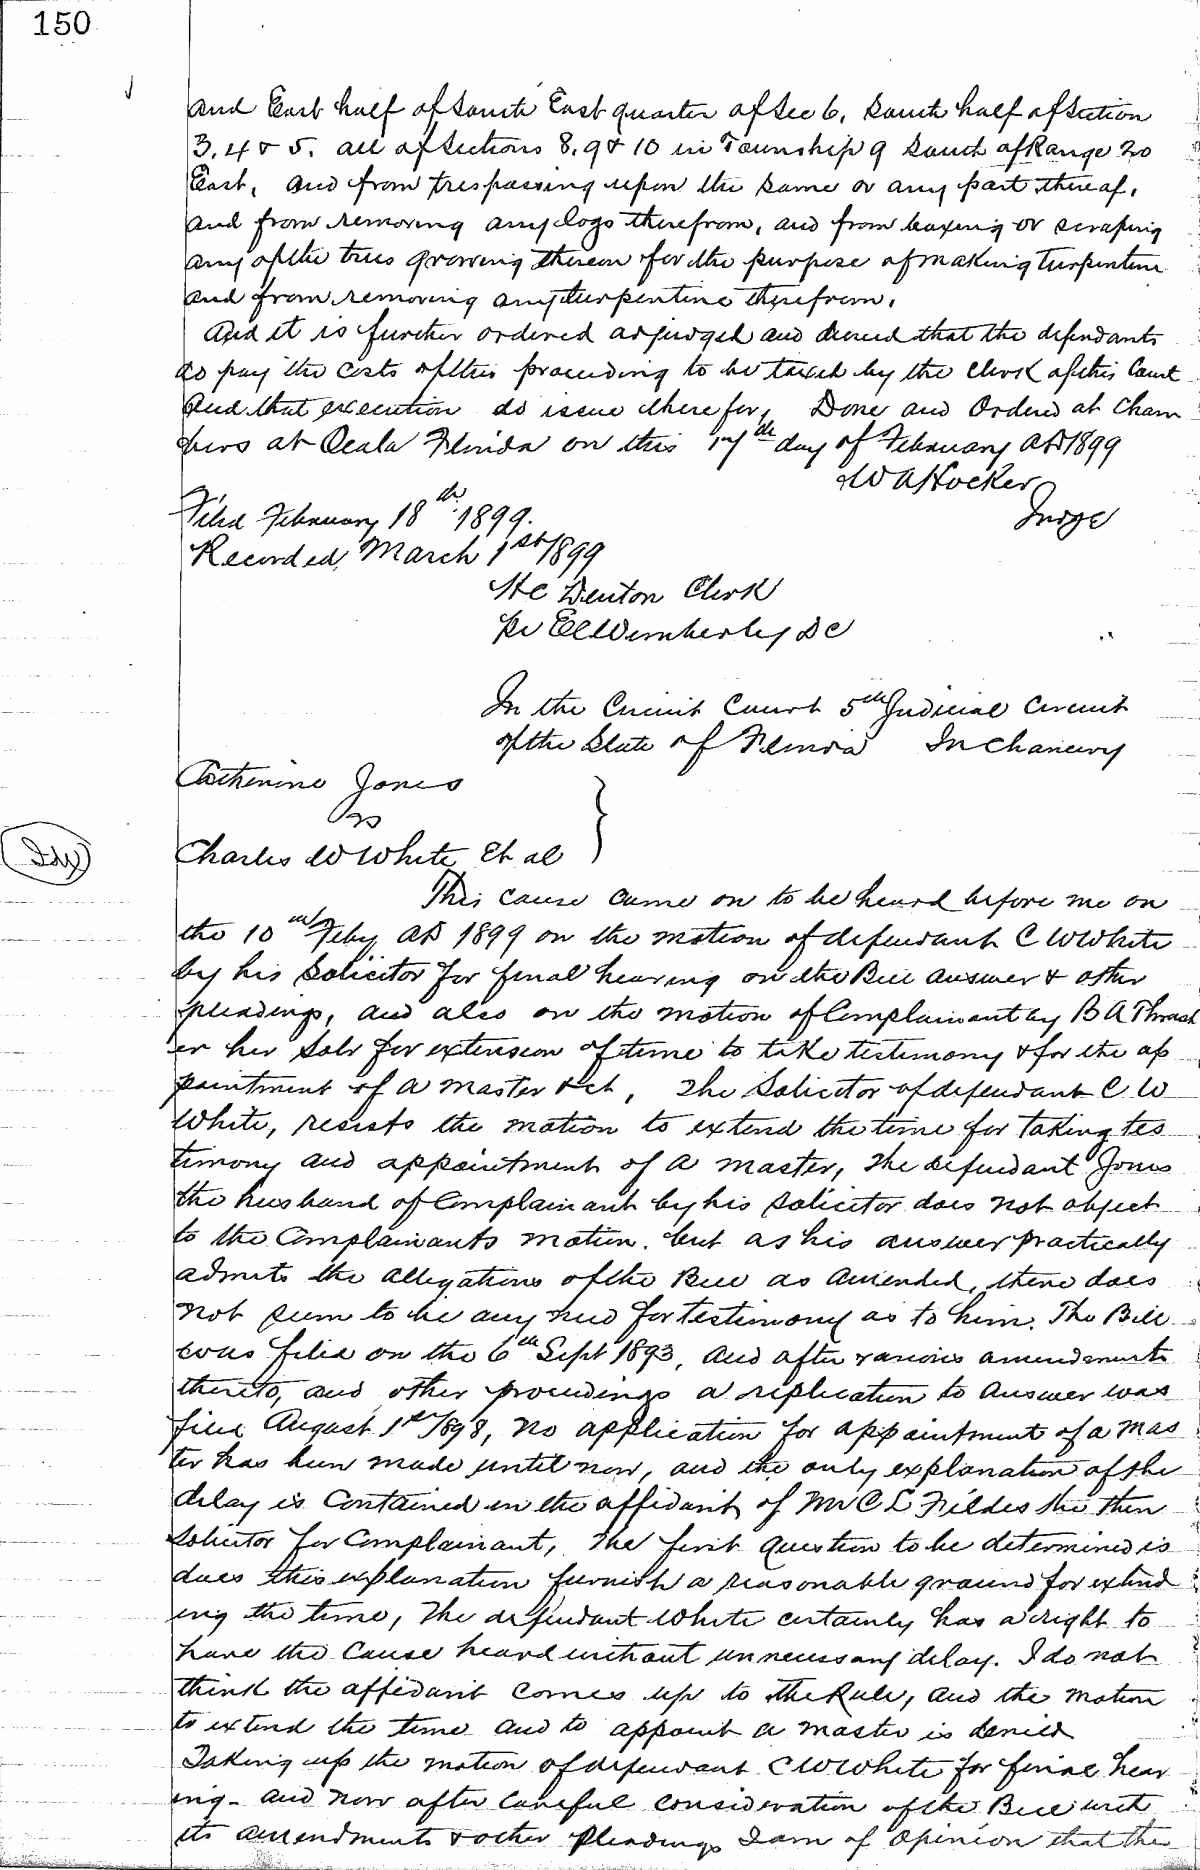 150
and East half of South East quarter of Sec 6. South half of Section
3. 4 & 5. all of Sections 8. 9 & 10 in Township 9 South of Range 20
East, and from trespassing upon the same or any part thereof,
and from removing any logs therefrom, and from boxing or scraping
any of the trees growing thereon for the purpose of making turpentine
and from removing any turpentine therefrom.
And it is further ordered adjudged and decreed that the defendants
do pay the costs of this proceeding to be taxed by the Clerk of this Court
and that execution do issue therefor, Done and Ordered at Cham
bers at Ocala Florida on this 17th day of February AD 1899
W A Hocker
Judge
Filed February 18th 1899.
Recorded March 1st 1899
H C Denton Clerk
per E C Wimberley DC
In the Circuit Court 5th Judicial Circuit
of the State of Florida In Chancery
Catherine Jones
vs
Charles W White Et al
This cause came on to be heard before me on
the 10th Feby AD 1899 on the motion of defendant C W White
by his Solicitor for final hearing on the Bill answer & other
pleadings, and also on the motion of Complainant by B A Thrash
er her Solr for extension of time to take testimony & for the ap
pointment of a Master &ct, The Solicitor of defendant C W
White, resists the motion to extend the time for taking tes
timony and appointment of a master, The defendant Jones
the husband of Complainant by his solicitor does not object
to the Complainants motion. but as his answer practically
admits the allegations of the Bill as amended, there does
not seem to be any need for testimony as to him. The Bill
was filed on the 6th Sept 1893, and after various amendments
thereto, and other proceedings a replication to answer was
filed August 1st 1898, no application for appointment of a Mas
ter has been made until now, and the only explanation of the
delay is contained in the affidavit of Mr C L Fildes the then
solicitor for Complainant, The first question to be determined is
does this explanation furnish a reasonable ground for extend
ing the time, The defendant White certainly has a right to
have the Cause heard without unnecessary delay. I do not
think the affidavit comes up to the Rule, and the motion
to extend the time and to appoint a master is denied
Taking up the motion of defendant C W White for final hear
ing - and now after careful consideration of the Bill with
its amendments & other pleadings I am of opinion that the